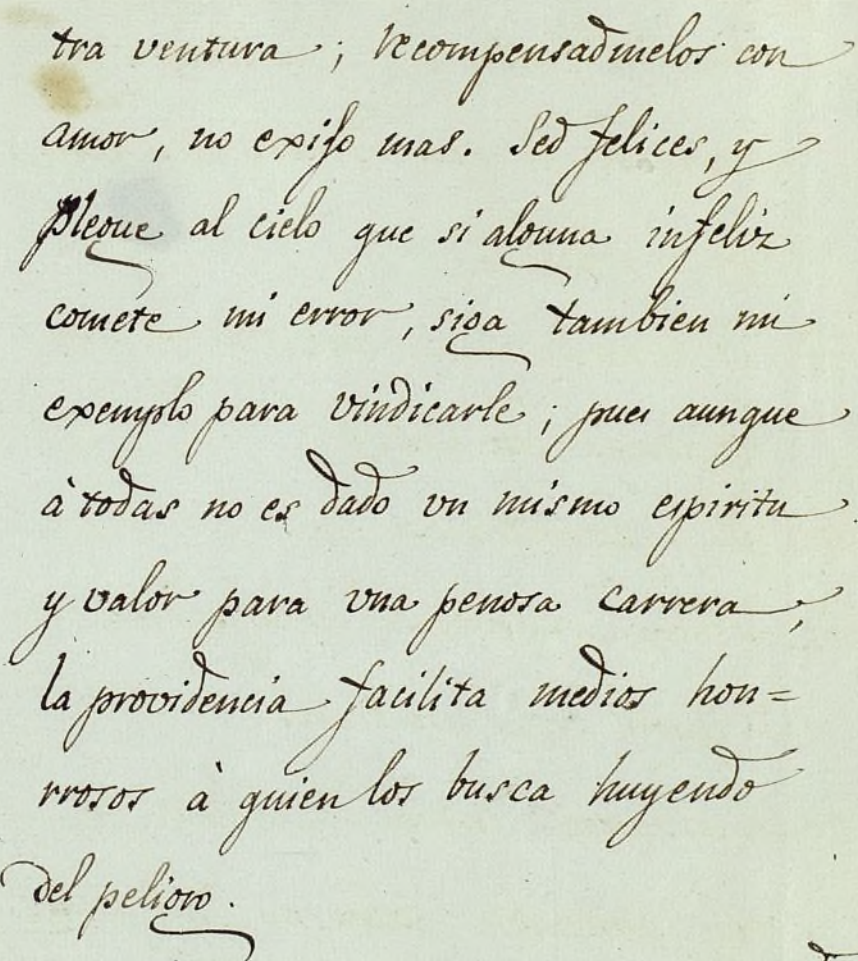 tra ventura; recompensadmelos con
amor, no exijo mas. Sed felices, y
plegue al cielo que si alguna infeliz
comete mi error, siga tambien mi
exemplo para vindicarle; pues aunque
à todas no es dado vn mismo espiritu
y valor para vna penosa carrera,
la providencia facilita medios hon=
rrosos à quien los busca huyendo
del peligro.